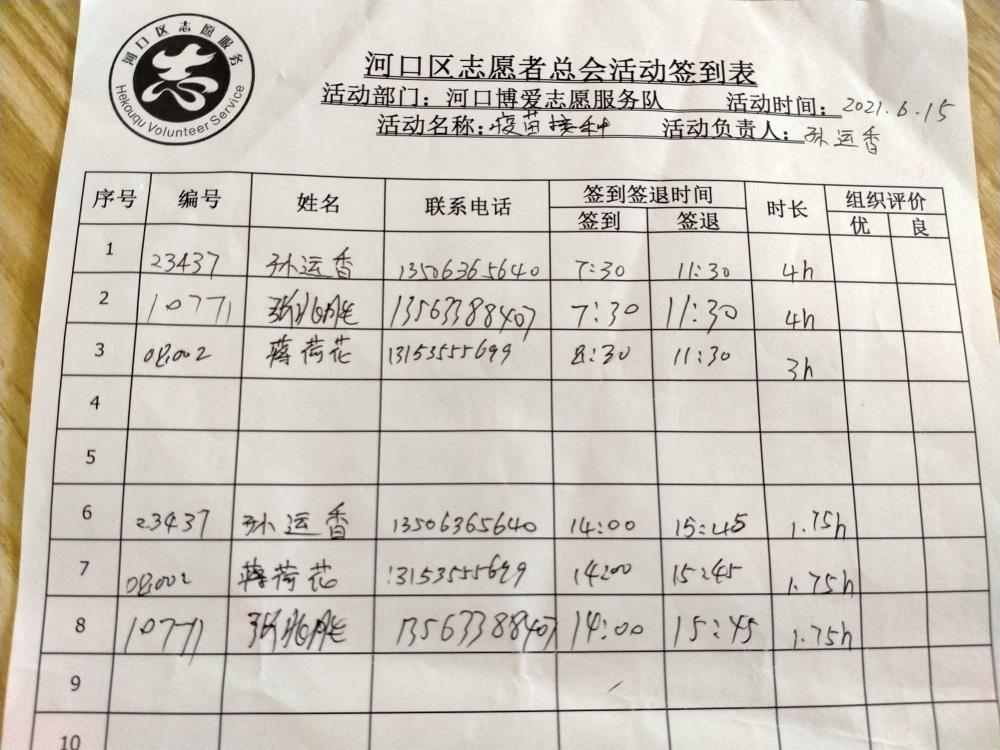 河口区志愿服务
志
Hekouqu Volunteer Service
河口区志愿者总会活动签到表
活动部门：河口博爱志愿服务队 活动时间：2021.6.15
活动名称：疫苗接种 活动负责人：孙运香
序号 编号 姓名 联系电话 签到签退时间 时长 组织评价
签到 签退 优 良
1 23437 孙运香 13506365640 7:30 11:30 4h
2 10771 张 13563388407 7:30 11:30 4h
3 08002 蒋荷花 13153555699 8:30 11:30 3h
4
5
6 23437 孙运香 13506365640 14:00 15:45 1.75h
7 08002 蒋荷花 13153555699 14:00 15:45 1.75h
8 10771 张 13563388407 14:00 15:45 1.75h
9
10